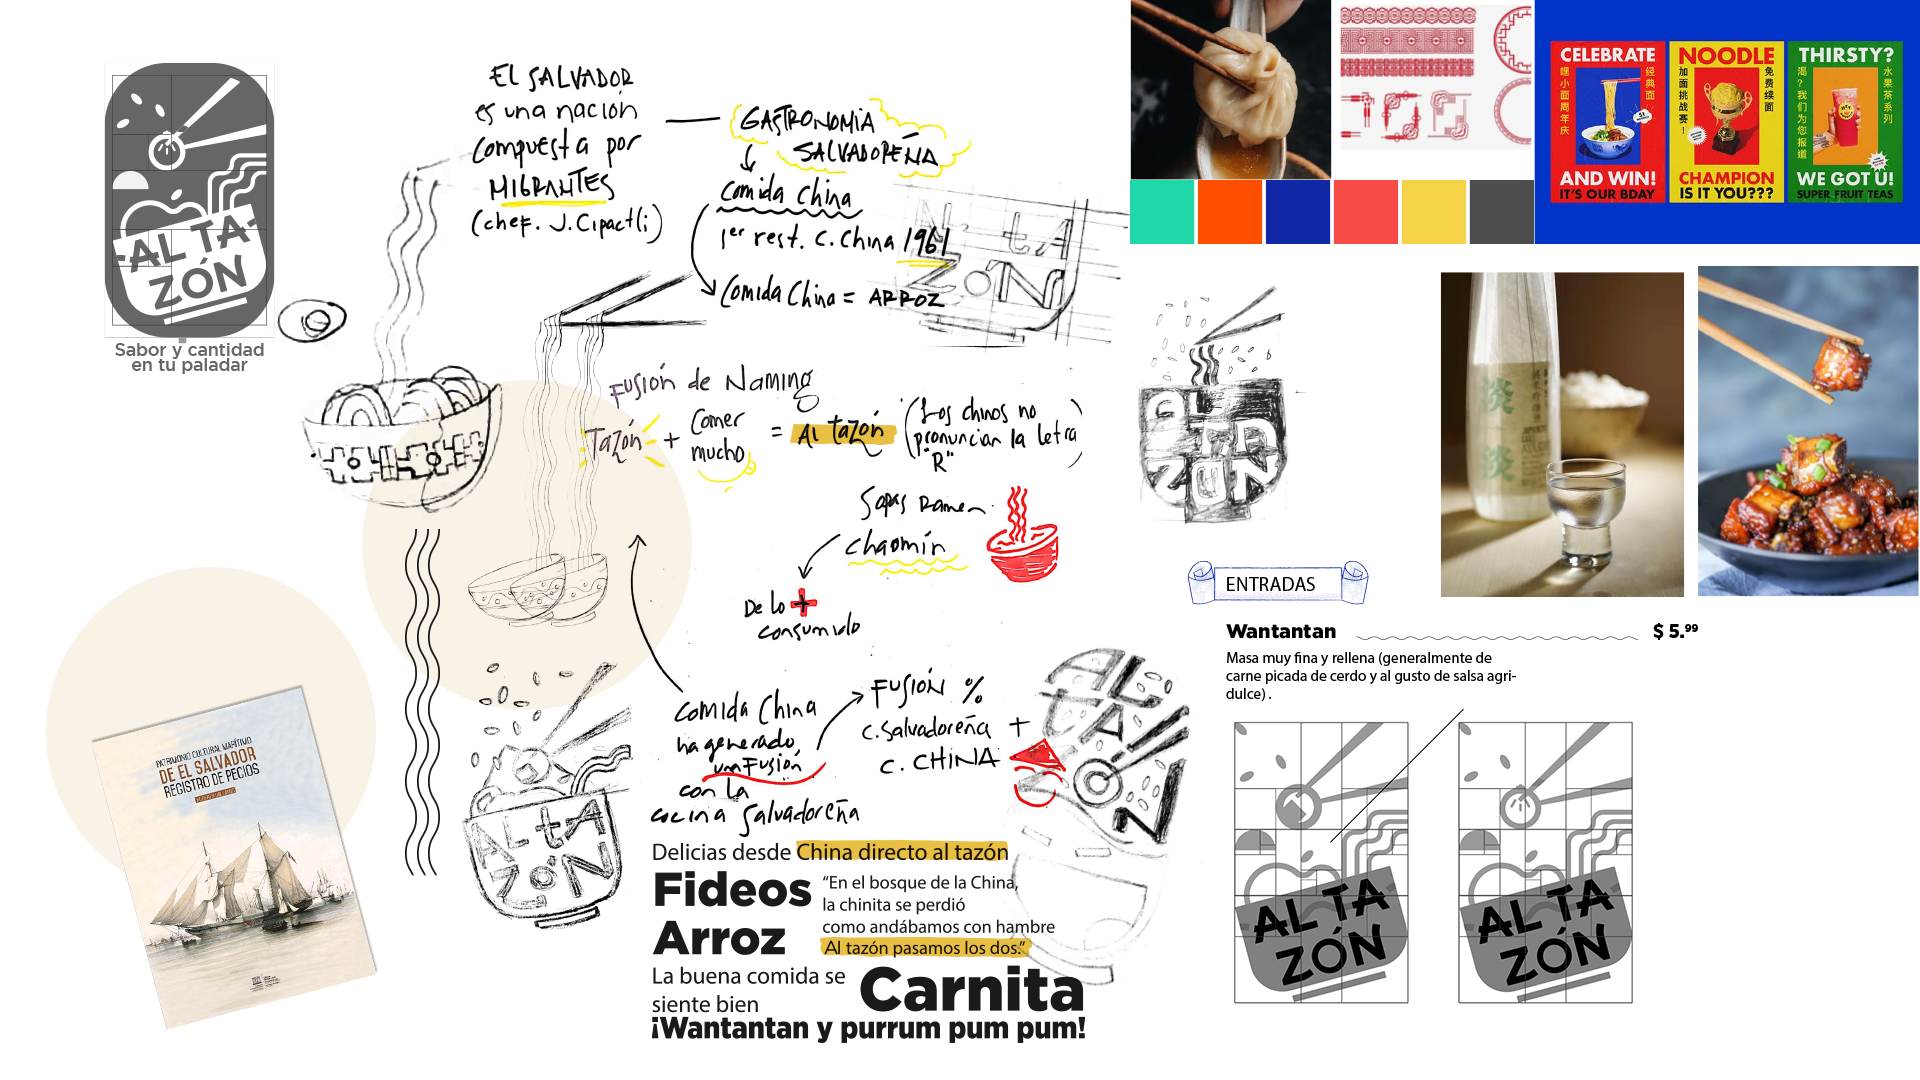 AL TA
ZÓN
Sabor y cantidad
en tu paladar
EL SALVADOR
es una nación
compuesta por
MIGRANTES
(chef. J. Cipactli)
GASTRONOMIA
SALVADOREÑA
comida China
1er rest. C. China 1961
Comida China = ARROZ
AL tA
ZóN
Fusión de Naming
Tazón + Comer
mucho = Al tazón (Los chinos no
pronuncian la letra
"R")
Sopas Ramen
chaomín
De lo +
consumido
comida China
ha generado
una Fusión
con la
cocina Salvadoreña
FUSIÓN %
c. Salvadoreña +
c. CHINA
AL
TA
ZON
AL tA
ZóN
AL
TA
ZON
PATRIMONIO CULTURAL MARÍTIMO
DE EL SALVADOR
REGISTRO DE PECIOS
Delicias desde China directo al tazón
Fideos
Arroz
“En el bosque de la China,
la chinita se perdió
como andábamos con hambre
Al tazón pasamos los dos.”
La buena comida se
siente bien
Carnita
¡Wantantan y purrum pum pum!
CELEBRATE
嘿小面周年庆
经典面
AND WIN!
IT'S OUR BDAY
NOODLE
加面挑战赛!
免费续面
CHAMPION
IS IT YOU???
THIRSTY?
渴?我们为您报道
水果茶系列
WE GOT U!
SUPER FRUIT TEAS
淡
淡
ENTRADAS
Wantantan $ 5.99
Masa muy fina y rellena (generalmente de
carne picada de cerdo y al gusto de salsa agri-
dulce) .
AL TA
ZÓN
AL TA
ZÓN